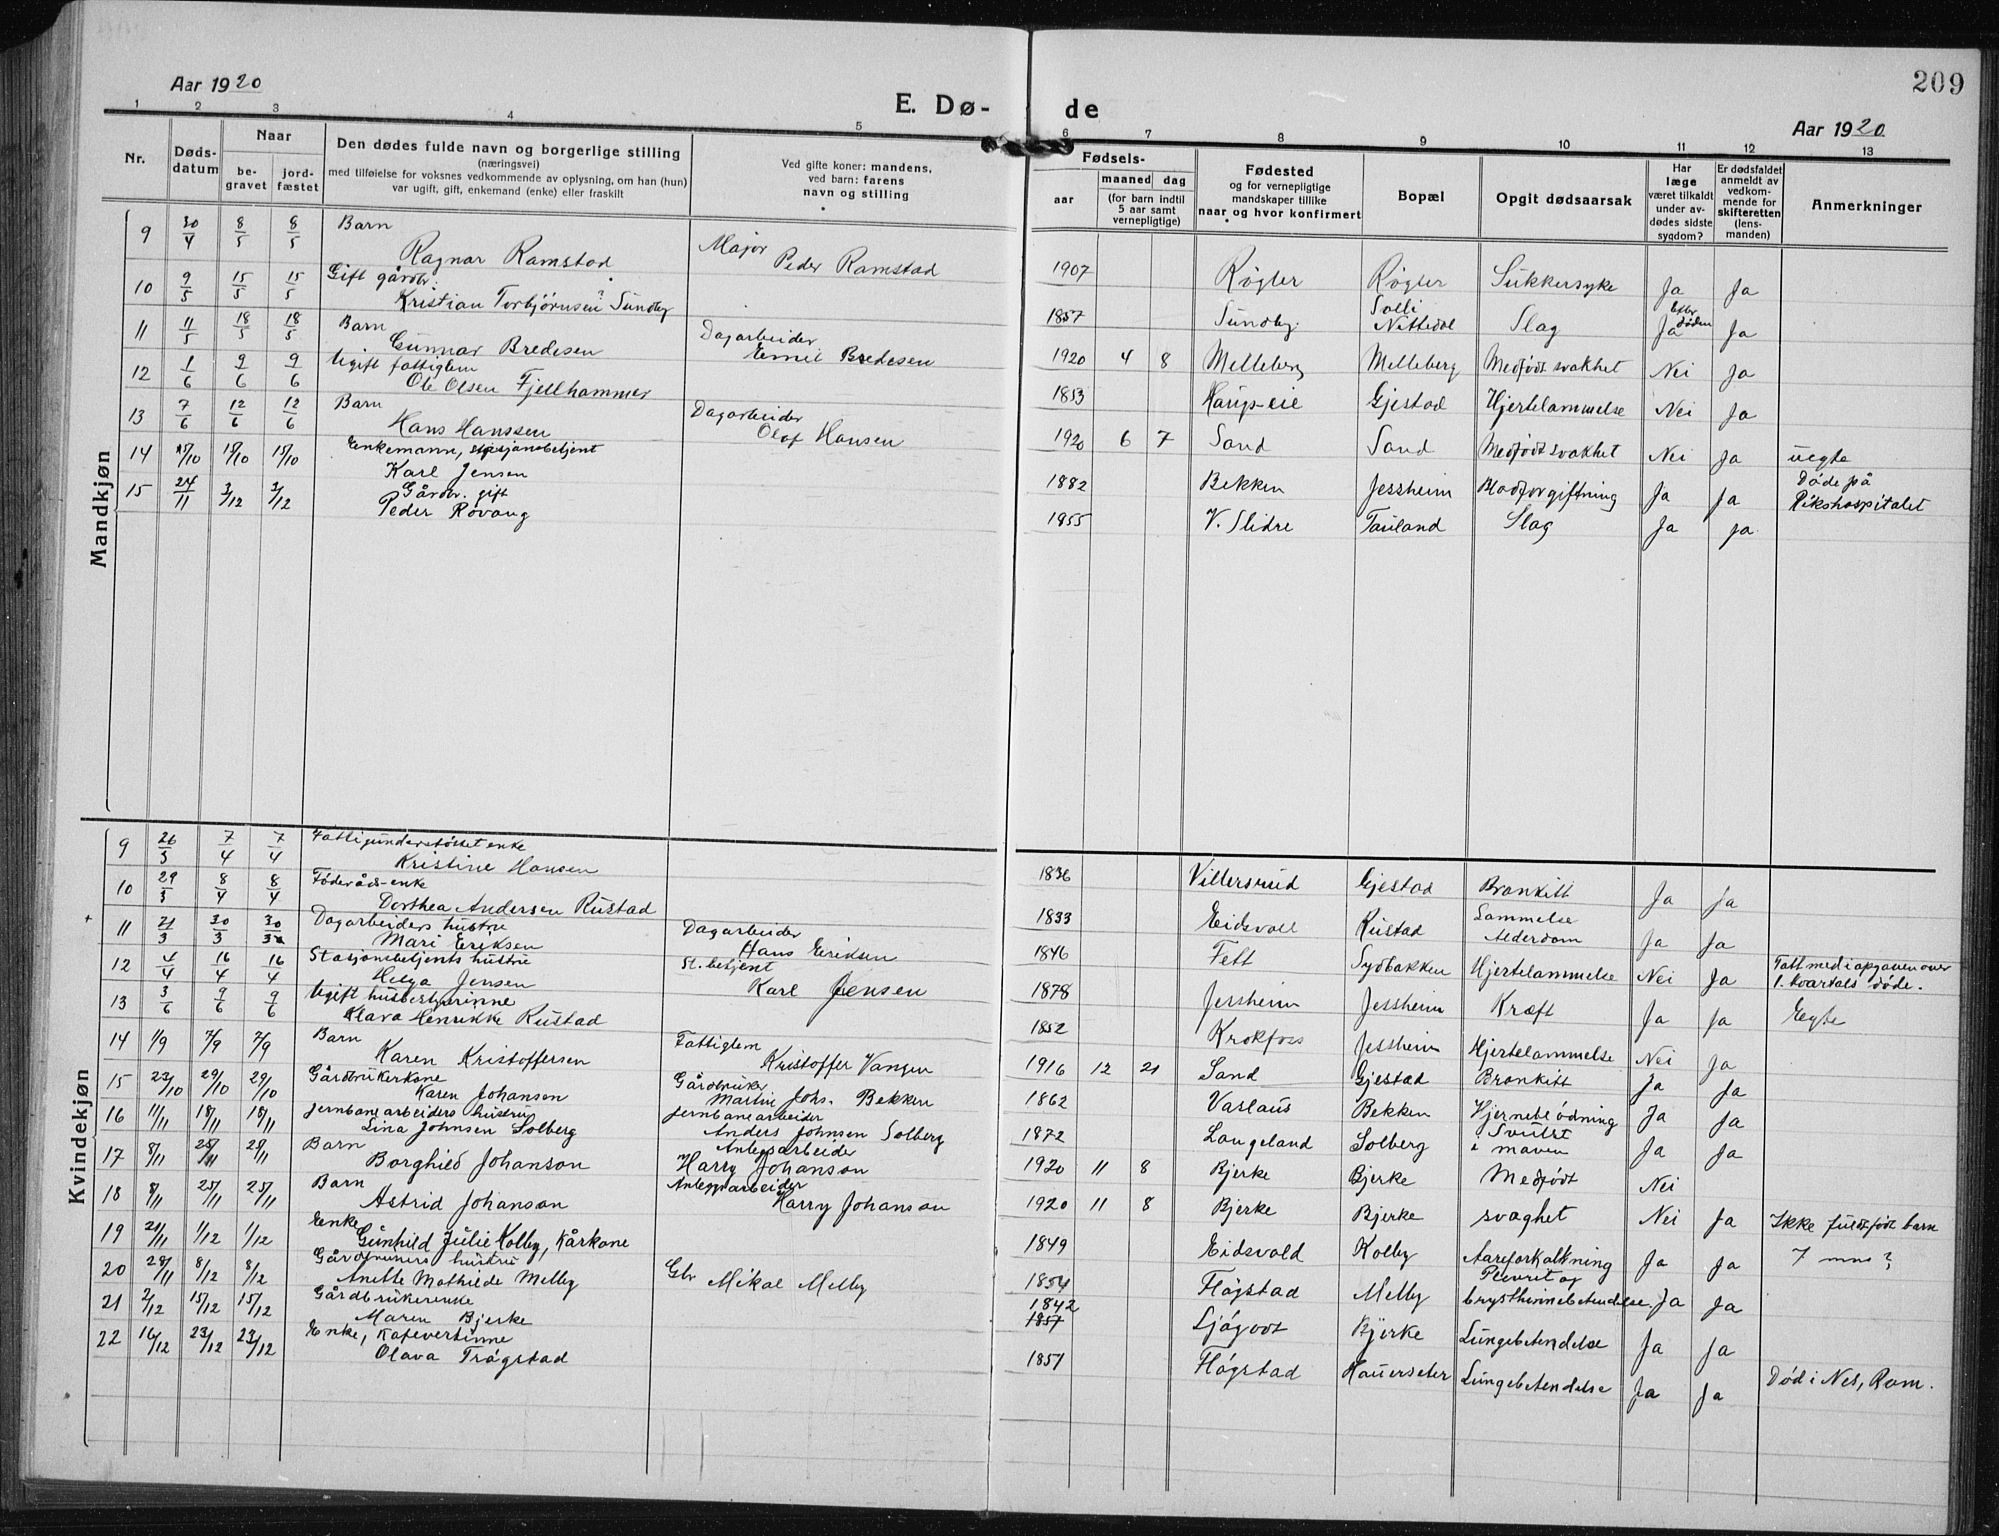 209
Aar 1920
E. Dø- de
Aar 1920
1 2 3 4 5 6 7 8 9 10 11 12 13
Nr.
Døds-
datum
Naar
be-
gravet
jord-
fæstet
Den dødes fulde navn og borgerlige stilling
(næringsvei)
med tilføielse for voksnes vedkommende av oplysning, om han (hun)
var ugift, gift, enkemand (enke) eller fraskilt
Ved gifte koner: mandens,
ved barn: farens
navn og stilling
Fødsels-
aar
maaned dag
(for barn indtil
5 aar samt
vernepligtige)
Fødested
og for vernepligtige
mandskaper tillike
naar og hvor konfirmert
Bopæl
Opgit dødsaarsak
Har
læge
været tilkaldt
under av-
dødes sidste
sygdom?
Er dødsfaldet
anmeldt av
vedkom-
mende for
skifteretten
(lens-
manden)
Anmerkninger
Mandkjøn
9 30/4 8/5 8/5 Barn Ragnar Ramstad Major Peder Ramstad 1907 Røgler Røgler Sukkersyke Ja Ja
10 9/5 15/5 15/5 Gift gårdbr. Kristian Torbjørnsen Sundby 1857 Sundby Solli Nittedal Slag Ja Etter døden Ja
11 11/5 18/5 18/5 Barn Gunnar Bredesen Dagarbeider Emil Bredesen 1920 4 8 Melleberg Melleberg Medfødt svakhet Nei Ja
12 1/6 9/6 9/6 Ugift fattiglem Ole Olsen Fjellhammer 1853 Haugs-eie Gjestad Hjertelammelse Nei Ja
13 7/6 12/6 12/6 Barn Hans Hanssen Dagarbeider Olaf Hansen 1920 6 7 Sand Sand Medfødt svakhet Nei Ja uegte
14 /10 15/10 15/10 Enkemann, stasjonsbetjent Karl Jensen 1882 Bekken Jessheim Blodforgiftning Ja Ja Døde på Rikshospitalet
15 24/11 3/12 3/12 Gårdbr. gift Peder Rovang 1955 V. Slidre Tauland Slag Ja ja
Kvindekjøn
9 26/3 7/4 7/4 Fattigunderstøttet enke Kristine Hansen 1836 Villersrud Gjestad Bronkitt Ja ja
10 29/3 8/4 8/4 Føderåds-enke Dorthea Andersen Rustad 1833 Eidsvoll Rustad Lammelse Alderdom Ja Ja
+ 11 21/3 30/3 30/3 Dagarbeiders hustru Mari Eriksen Dagarbeider Hans Eriksen 1846 Fett Sydbakken Hjertelammelse Nei Ja Tatt med i opgaven over 1. kvartals døde.
12 4/4 16/4 16/4 Stasjonsbetjents hustru Helga Jensen St. betjent Karl Jensen 1878 Jessheim Jessheim Kræft Ja Ja Egte
13 3/6 9/6 9/6 Ugift husbestyrinne Klara Henrikke Rustad 1852 Krokfoss Jessheim Hjertelammelse Nei Ja
14 1/9 7/9 7/9 Barn Karen Kristoffersen Fattiglem Kristoffer Vangen 1916 12 21 Sand Gjestad Bronkitt Ja Ja
15 23/10 29/10 29/10 Gårdbrukerkone Karen Johansen Gårdbruker Martin Johs. Bekken 1862 Vaslaus Bekken Hjerneblødning Ja Ja
16 11/11 18/11 18/11 Jernbanearbeiders hustru Lina Johnsen Solberg Jernbanearbeider Anders Johnsen Solberg 1872 Langeland Solberg Svulst i maven Ja Ja
17 8/11 25/11 25/11 Barn Borghild Johanson Anlegsarbeider Harry Johanson 1920 11 8 Bjerke Bjerke Medfødt Nei
18 8/11 25/11 25/11 Barn Astrid Johanson Anleggsarbeider Harry Johanson 1920 11 8 Bjerke Bjerke svaghet Nei Ja Ikke fuldfødt barn 7 mns?
19 21/11 1/12 1/12 Enke Gunhild Julie Kolby, Kårkone 1849 Eidsvold Kolby Aareforkalkning Ja Ja
20 28/11 8/12 8/12 Gårdbrukers hustru Anette Mathilde Melby Gbr Mikal Melby 1854 Høgstad Melby Plevrit og brysthinnebetendelse Ja Ja
21 2/12 15/12 15/12 Gårdbrukerenke Maren Bjerke 1842 1857 Ljøgodt Bjerke Lungebetendelse Ja Ja
22 16/12 23/12 23/12 Enke, Kafevertinne Olava Trøgstad 1857 Høgstad Hauerseter Lungebetendelse Ja Ja Død i Nes, Rom.